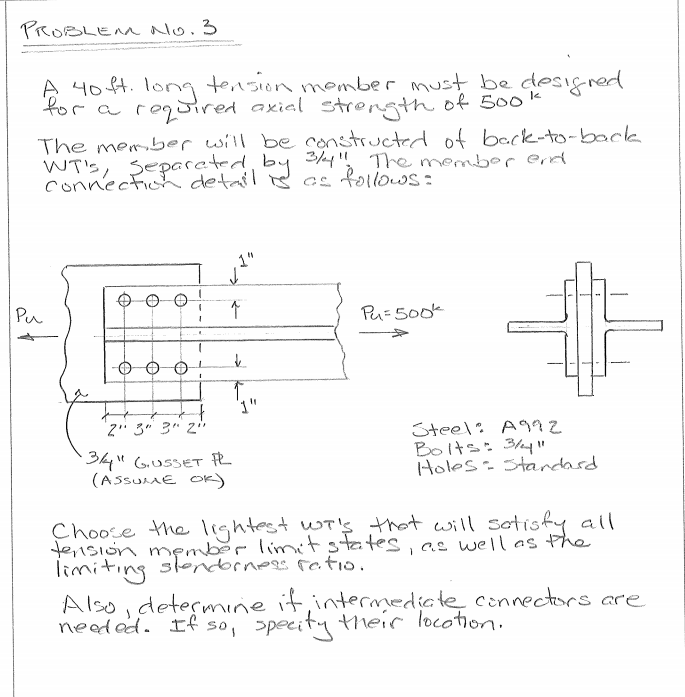 PROBLEM NO. 3
A 40 ft. long tension member must be designed
for a required axial strength of 500ᵏ
The member will be constructed of back-to-back
WT's, separated by 3/4". The member end
connection detail is as follows:
1"
Pu
Pu=500ᵏ
1"
2" 3" 3" 2"
3/4" GUSSET PL
(ASSUME OK)
Steel: A992
Bolts: 3/4"
Holes: Standard
Choose the lightest WT's that will satisfy all
tension member limit states, as well as the
limiting slenderness ratio.
Also, determine if intermediate connectors are
needed. If so, specify their location.